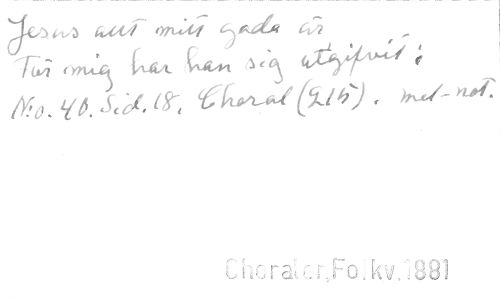 Jesus allt mitt goda är
För mig har han sig utgifvit;
N:o. 40. Sid. 18. Choral (215). mel-not.
Choraler, Folkv. 1881